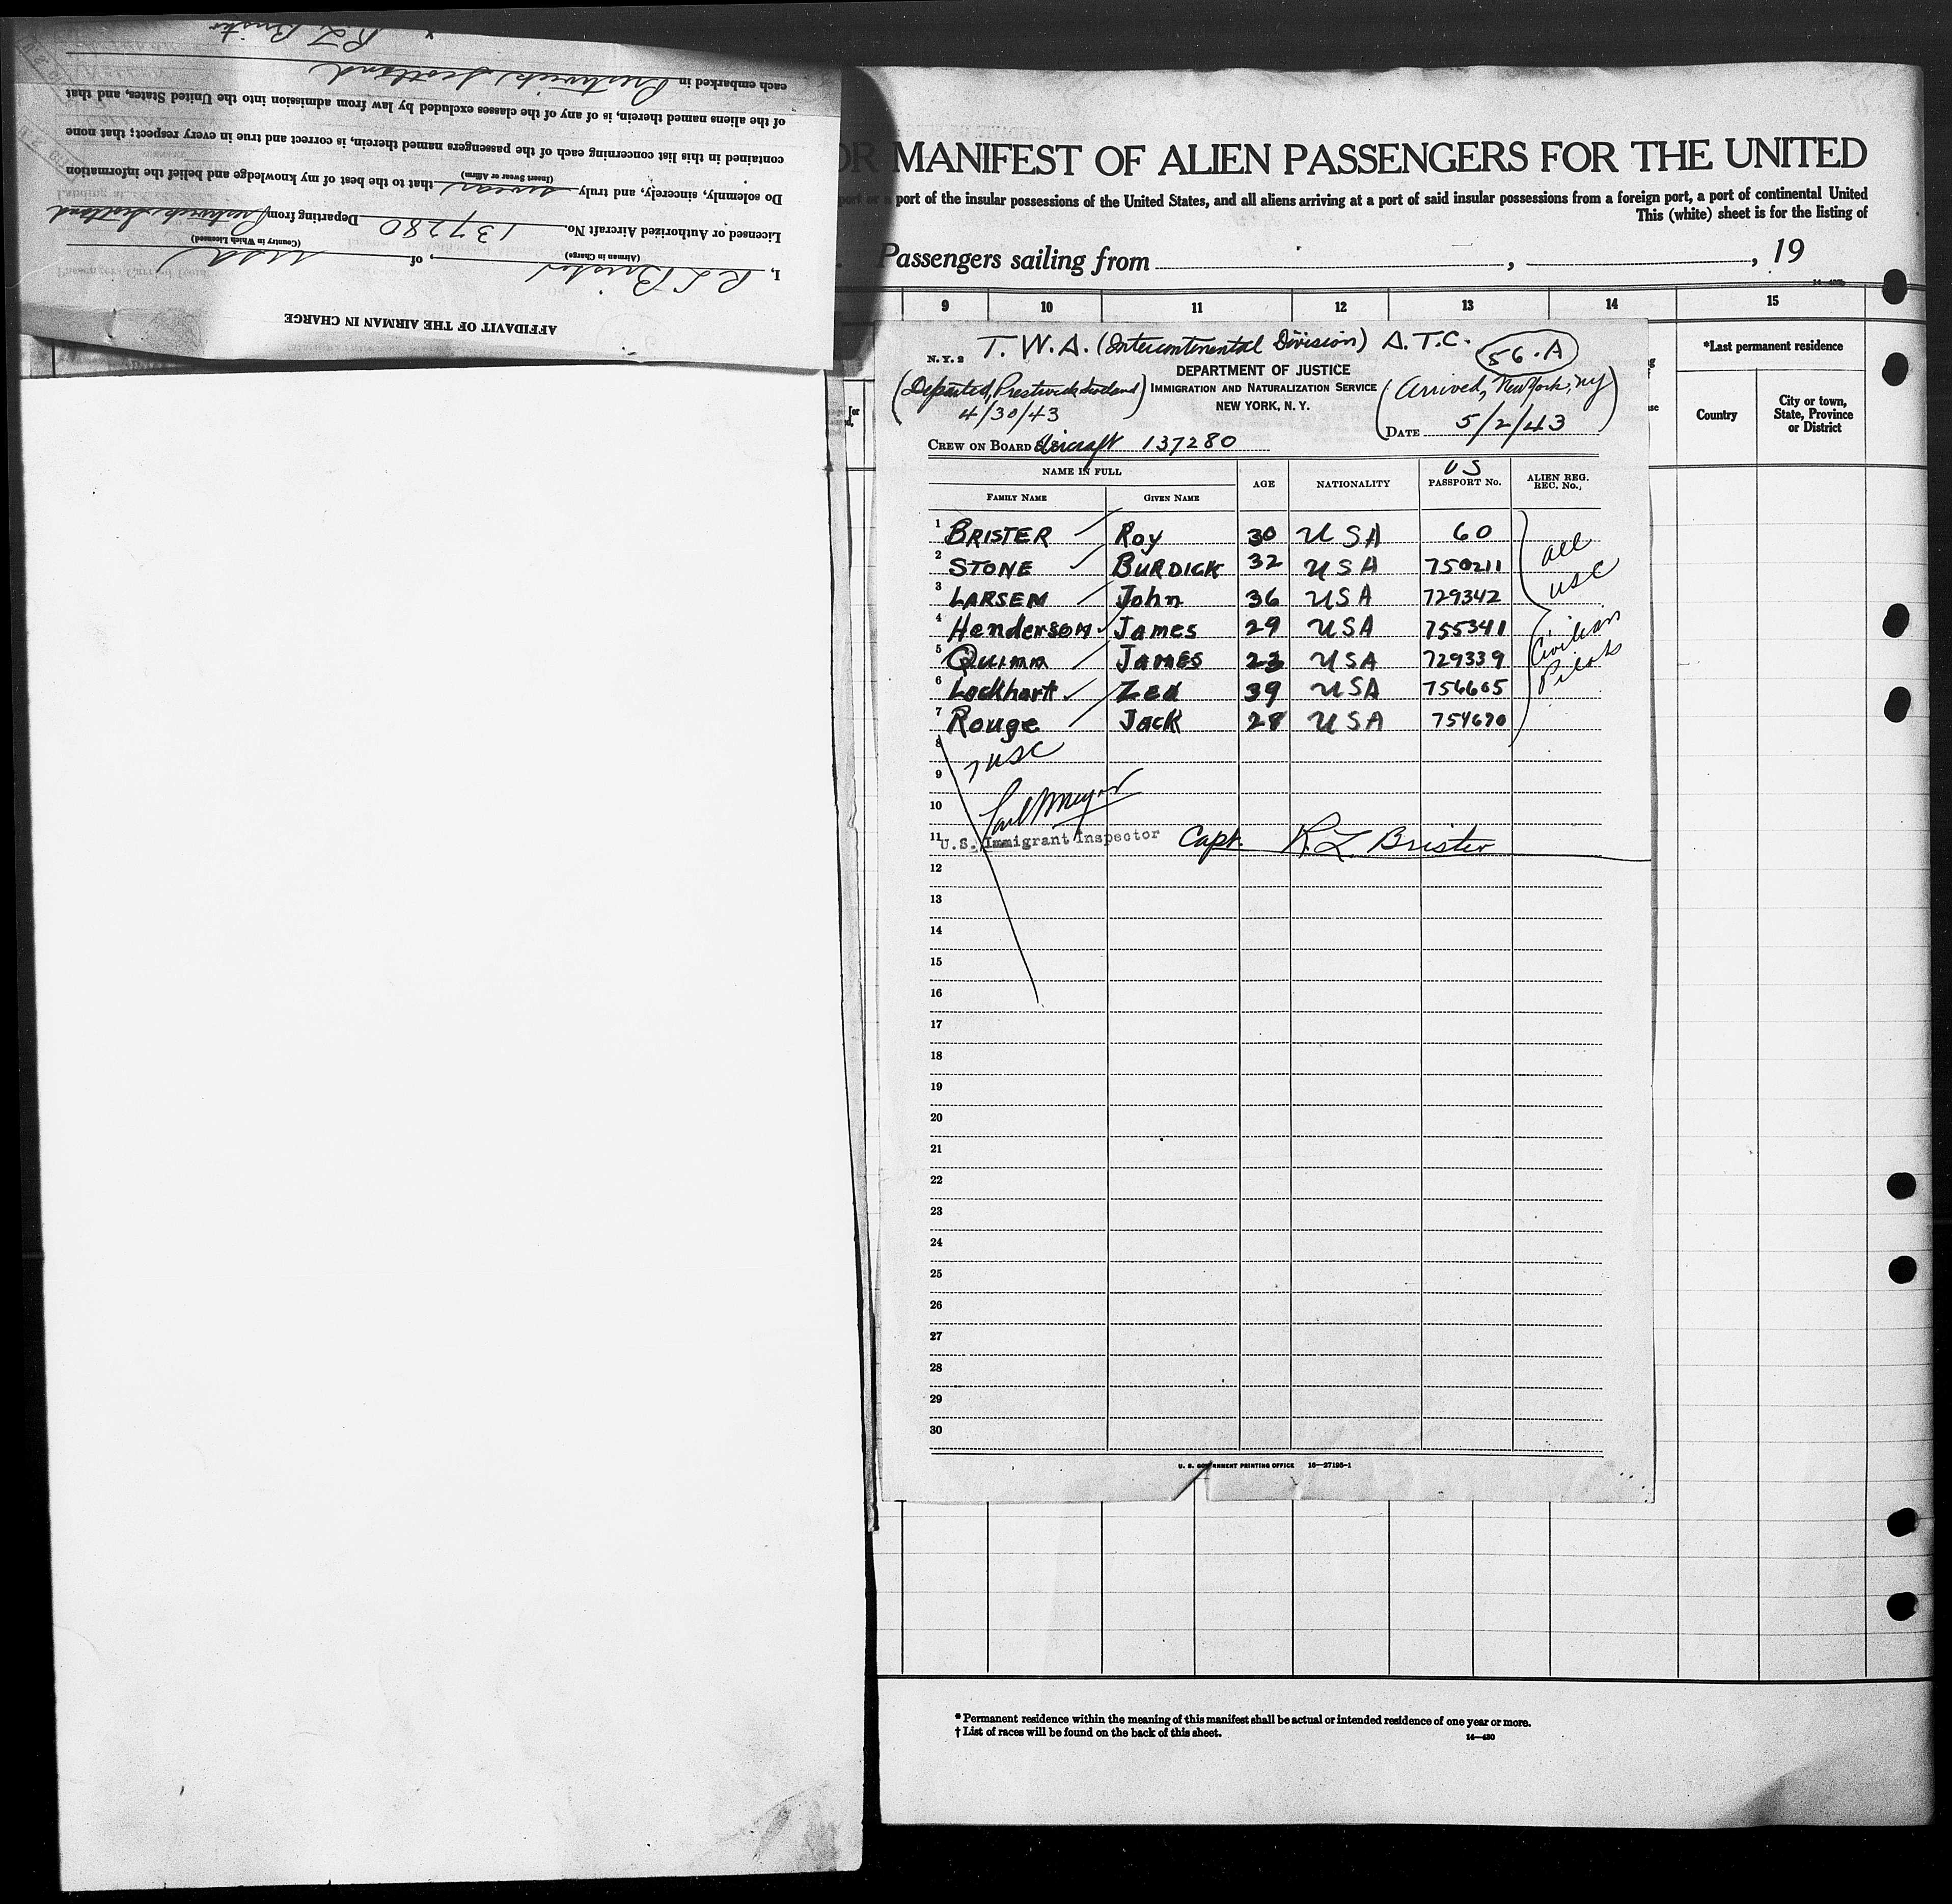 AFFIDAVIT OF THE AIRMAN IN CHARGE
I, R L Brister, of USA
(Airman in Charge) (Country in Which Licensed)
Licensed or Authorized Aircraft No. 137280 Departing from Prestwick, Scotland
Do solemnly, sincerely, and truly swear that to the best of my knowledge and belief the information
(Insert Swear or Affirm)
contained in this list concerning each of the passengers named therein, is correct and true in every respect; that none
of the aliens named therein, is of any of the classes excluded by law from admission into the United States, and that
each embarked in Prestwick, Scotland
R L Brister
OR MANIFEST OF ALIEN PASSENGERS FOR THE UNITED
port or a port of the insular possessions of the United States, and all aliens arriving at a port of said insular possessions from a foreign port, a port of continental United
This (white) sheet is for the listing of
Passengers sailing from , , 19
9 10 11 12 13 14 15
*Last permanent residence
Country
City or town, State, Province or District
N. Y. 2 T.W.A. (Intercontinental Division) A.T.C. 56-A
DEPARTMENT OF JUSTICE
(Departed, Prestwick Scotland IMMIGRATION AND NATURALIZATION SERVICE (Arrived, New York, NY
4/30/43) NEW YORK, N. Y.
CREW ON BOARD Aircraft 137280 DATE 5/2/43)
NAME IN FULL AGE NATIONALITY US PASSPORT No. ALIEN REG. REC. No.,
FAMILY NAME GIVEN NAME
1 BRISTER Roy 30 USA 60
2 STONE BURDICK 32 USA 750211 all
3 LARSEN John 36 USA 729342 USC
4 Henderson James 29 USA 755341 Civilian
5 Quinn JAMES 23 USA 729339 Pilots
6 Lockhart Zed 39 USA 756605
7 Rouge Jack 28 USA 754670
8 7 USC
9
10
11 U.S. Immigrant Inspector Capt. R.L. Brister
12
13
14
15
16
17
18
19
20
21
22
23
24
25
26
27
28
29
30
U. S. GOVERNMENT PRINTING OFFICE 16—27195-1
* Permanent residence within the meaning of this manifest shall be actual or intended residence of one year or more.
† List of races will be found on the back of this sheet.
14—430